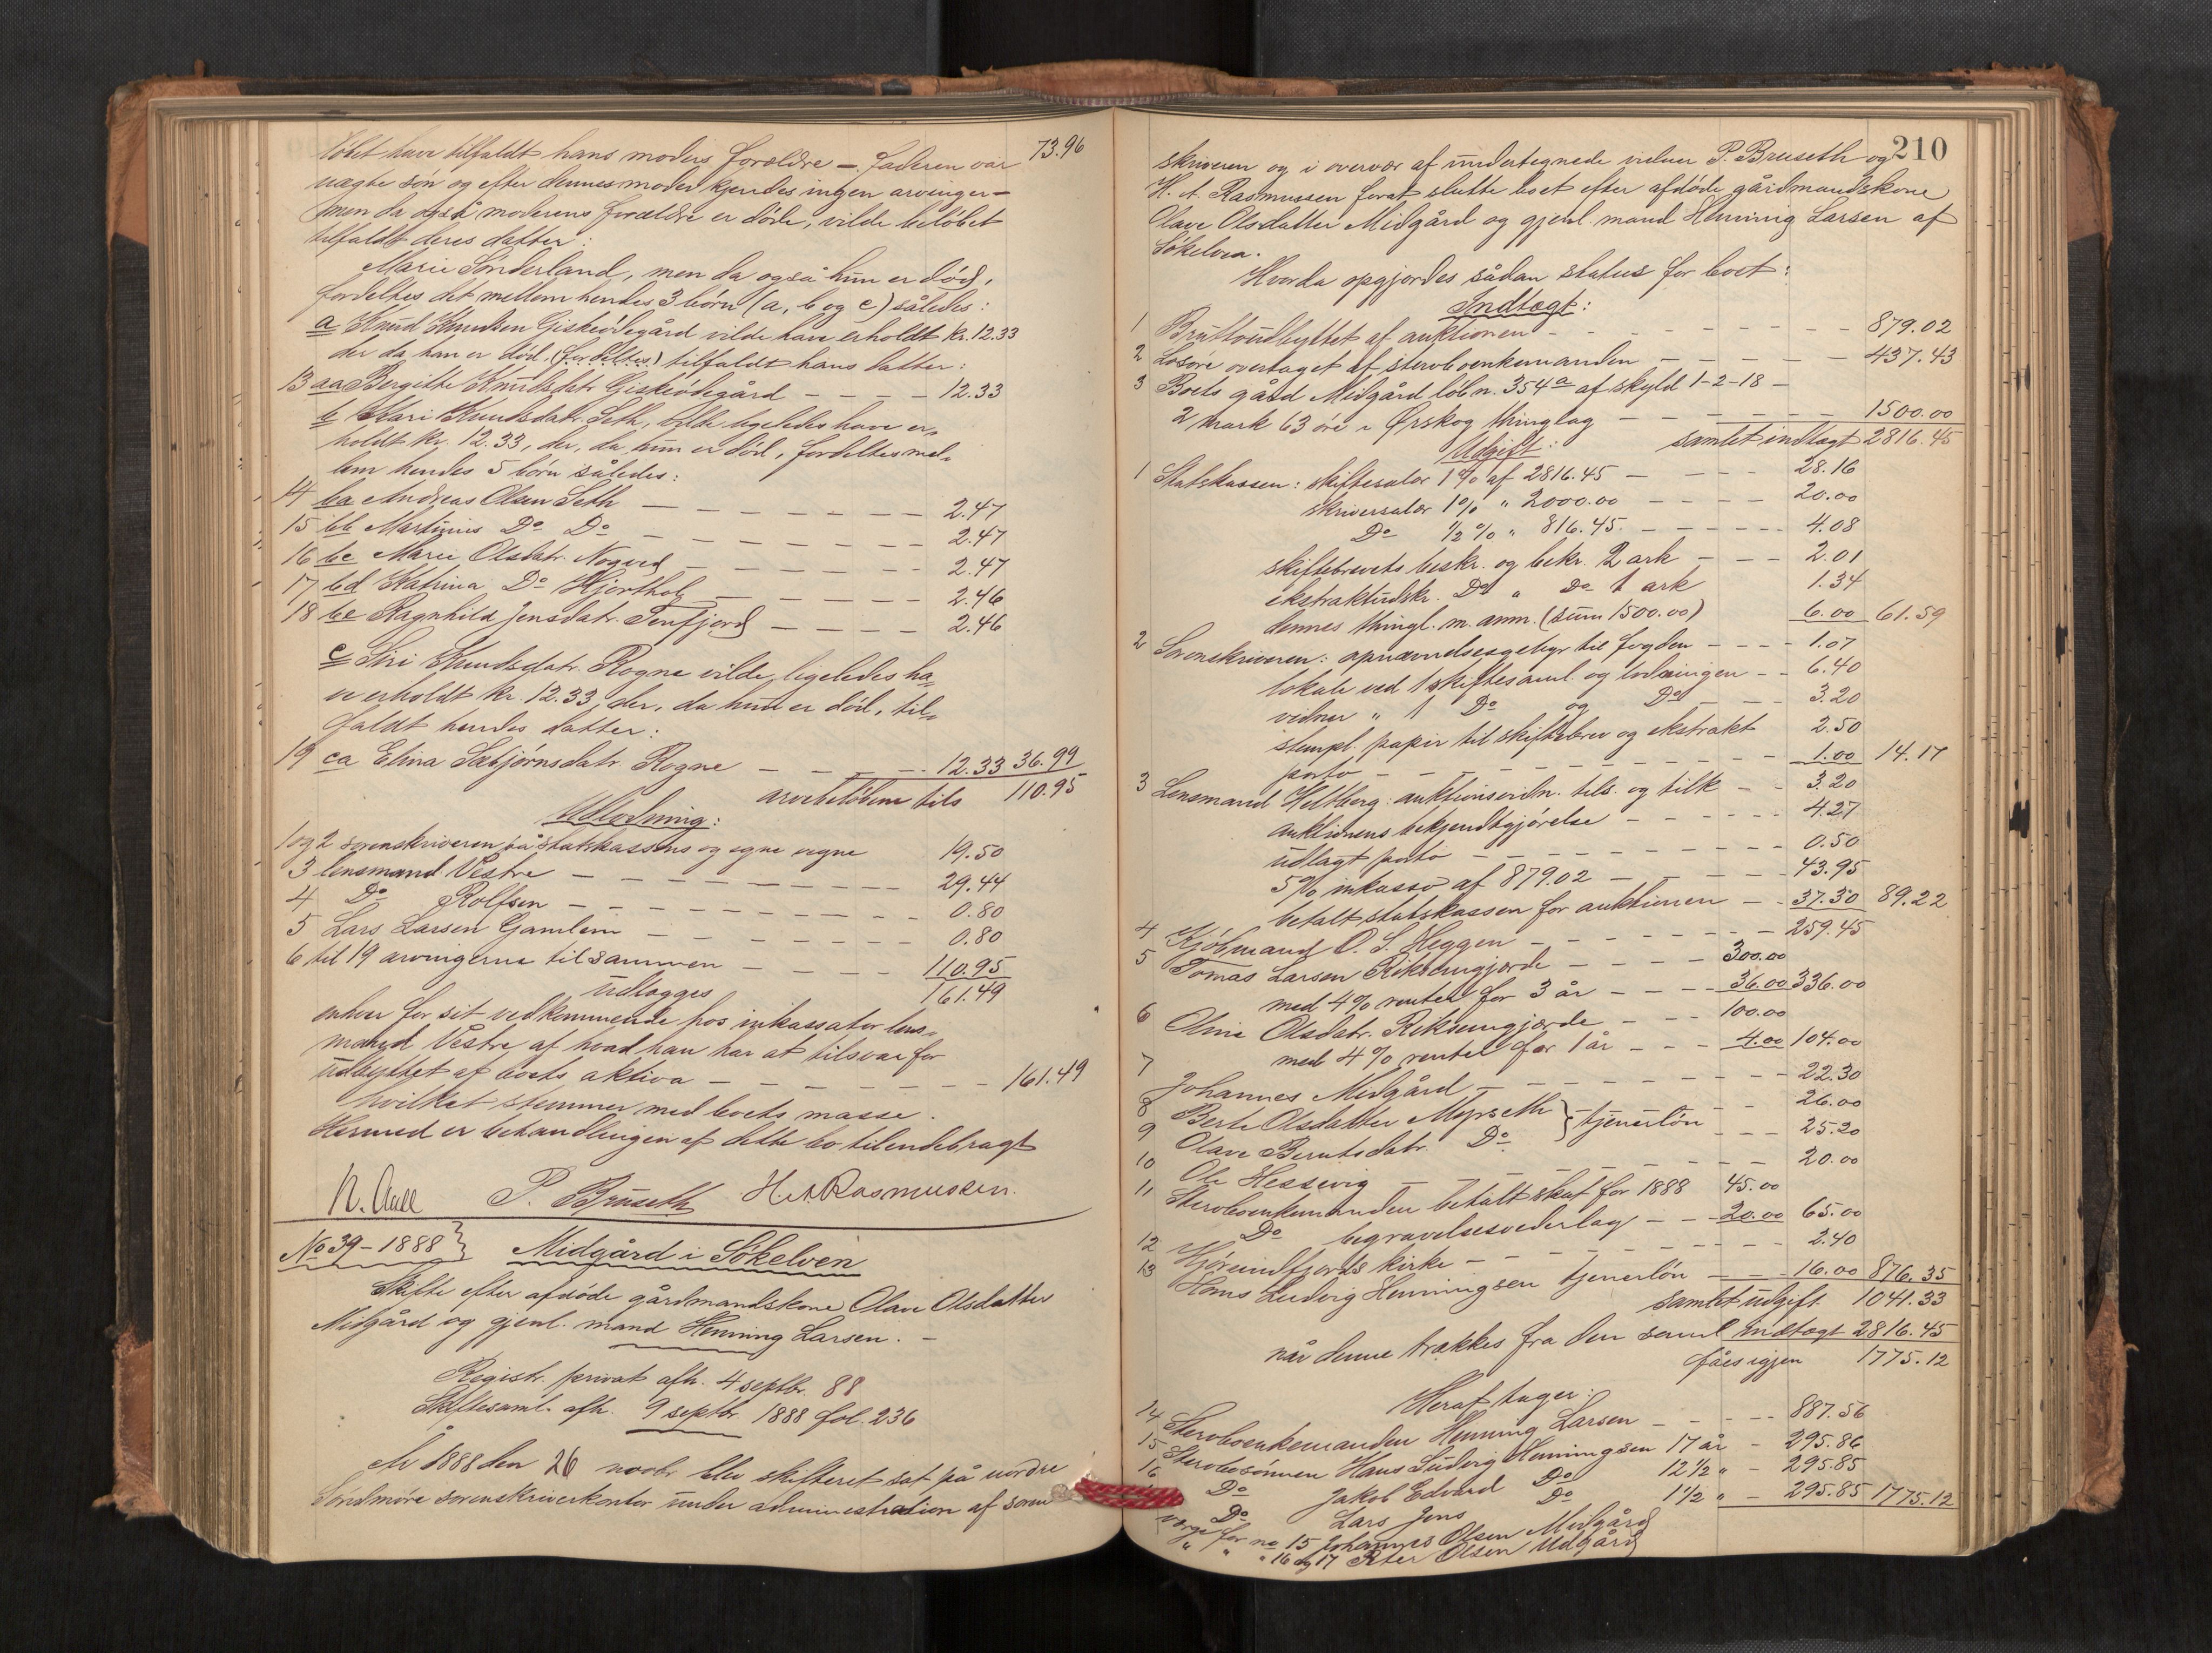 løbet have tilfaldt hans moders forældre – faderen var 73.96
uægte søn og efter dennes moder kjendes ingen arvinger –
men da også moderens forældre er døde, vilde beløbet
tilfaldt deres datter:
Marie Sønderland, men da også hun er død,
fordeltes det mellem hendes 3 børn (a, b og c) således:
a Knud Knudsen Giskeødegård vilde have erholdt kr. 12.33
der da han er død, (fordeltes) tilfaldt hans datter:
13 aa Bergitte Knudsdatr. Giskeødegård – – – – 12.33
b Kari Knudsdatr. Seth, vilde ligeledes have er-
holdt kr. 12.33, der, da hun er død, fordeltes mel-
lem hendes 5 børn således:
14 ba Andreas Olsen Seth – – – – – – – 2.47
15 bb Martinus Do Do – – – – – – – 2.47
16 bc Marie Olsdatr. Nogved – – – – – – 2.47
17 bd Katrina Do Hjortholm – – – – – – 2.46
18 be Ragnhild Jensdatr. Tenfjord – – – – 2.46
c Siri Knudsdatr. Rogne vilde, ligeledes ha-
ve erholdt kr. 12.33, der, da hun er død, til-
faldt hendes datter:
19 ca Elina Sæbjørnsdatr. Rogne – – – – – 12.33 36.99
arvebeløbene tils 110.95
Udlodning:
1 og 2 sorenskriveren på statskassens og egne vegne 19.50
3 lensmand Vestre – – – – – – – – – 29.44
4 Do Rolfsen – – – – – – – – – 0.80
5 Lars Larsen Gamlem – – – – – – – 0.80
6 til 19 arvingerne tilsammen – – – – 110.95
udlægges 161.49
enhver for sit vedkommende hos inkassator lens-
mand Vestre af hvad han har at tilsvare for
udbyttet af boets aktiva – – – – – – – 161.49
hvilket stemmer med boets masse.
Hermed er behandlingen af dette bo tilendebragt
N. Aall P. Bruseth H. A. Rasmussen.
No 39 – 1888 } Midgård i Søkelven
Skifte efter afdøde gårdmandskone Olave Olsdatter
Midgård og gjenl. mand Henning Larsen. –
Registr. privat afh. 4 septbr. 88
Skiftesaml. afh. 9 septbr. 1888 fol. 236
År 1888 den 26 novbr blev skifteret sat på nordre
Søndmøre sorenskriverkontor under administration af soren-
210
skriveren og i overvær af undertegnede vidner P. Bruseth og
H. A. Rasmussen forat slutte boet efter afdøde gårdmandskone
Olave Olsdatter Midgård og gjenl. mand Henning Larsen af
Søkelven.
Hvorda opgjordes sådan status for boet:
Indtægt:
1 Bruttoudbyttet af auktionen – – – – – – – – – 879.02
2 Løsøre overtaget af sterboenkemanden – – – – – 437.43
3 Boets gård Midgård løbn. 354a af skyld 1-2-18 –
2 mark 63 øre i Ørskog thinglag – – – – – – – 1500.00
Udgift: samlet indtægt 2816.45
1 Statskassen: skiftesalær 1% af 2816.45 – – – – 28.16
skriversalær 1% " 2000.00 – – – – 20.00
Do ½% " 816.45. – – – – – 4.08
skiftebrevets beskr. og bekr. 2 ark – – – 2.01
ekstraktudskr. Do " Do 1 ark 1.34
dennes thingl. m. anm. (sum 1500.00) 6.00 61.59
2 Sorenskriveren: opnævnelsesgebyr til fogden – – – – 1.07
lokale ved 1 skiftesaml. og lodningen – – 6.40
vidner " 1 Do og Do – – – 3.20
stempl. papir til skiftebrev og ekstrakt 2.50
porto – – – – – – – – – – – 1.00 14.17
3 Lensmand Heltberg: auktionsvidn. tils. og tilk – – 3.20
auktionens bekjendtgjørelse – – – – – – 4.27
udlagt porto – – – – – – – – – – 0.50
5% inkasso af 879.02 – – – – – – 43.95
betalt statskassen for auktionen – – 37.30 89.22
4 Kjøbmand O. S. Heggen – – – – – – – – 259.45
5 Tomas Larsen Riksemgjerde – – – – 300.00
med 4% renter for 3 år – – – – 36.00 336.00
6 Oline Olsdatr. Riksemgjærde – – – 100.00
med 4% renter for 1 år – – – 4.00 104.00
7 Johannes Midgård – – – – – – – – – 22.30
8 Berte Olsdatter Myrseth } tjenerløn – – 26.00
9 Olave Berntsdatr. Do – – – 25.20
10 Ole Hessevig – – – – – – – – – 20.00
11 Sterboenkemanden betalt skat for 1888 45.00
Do begravelsesvederlag – – 20.00 65.00
12 Hjørundfjords kirke – – – – – – – – – 2.40
13 Hans Ludvig Henningsen tjenerløn – – – 16.00 876.35
samlet udgift 1041.33
når denne trækkes fra den saml indtægt 2816.45
fåes igjen 1775.12
Heraf tager:
14 Sterboenkemanden Henning Larsen – – – – 887.56
15 Sterbosønnen Hans Ludvig Henningsen 17 år – 295.86
16 Do Jakob Edvard Do 12½ " – 295.85
Do Lars Jens Do 1½ " – 295.85 1775.12
værge for no 15 Johannes Olsen Midgård
" " " 16 og 17 Peter Olsen Midgård